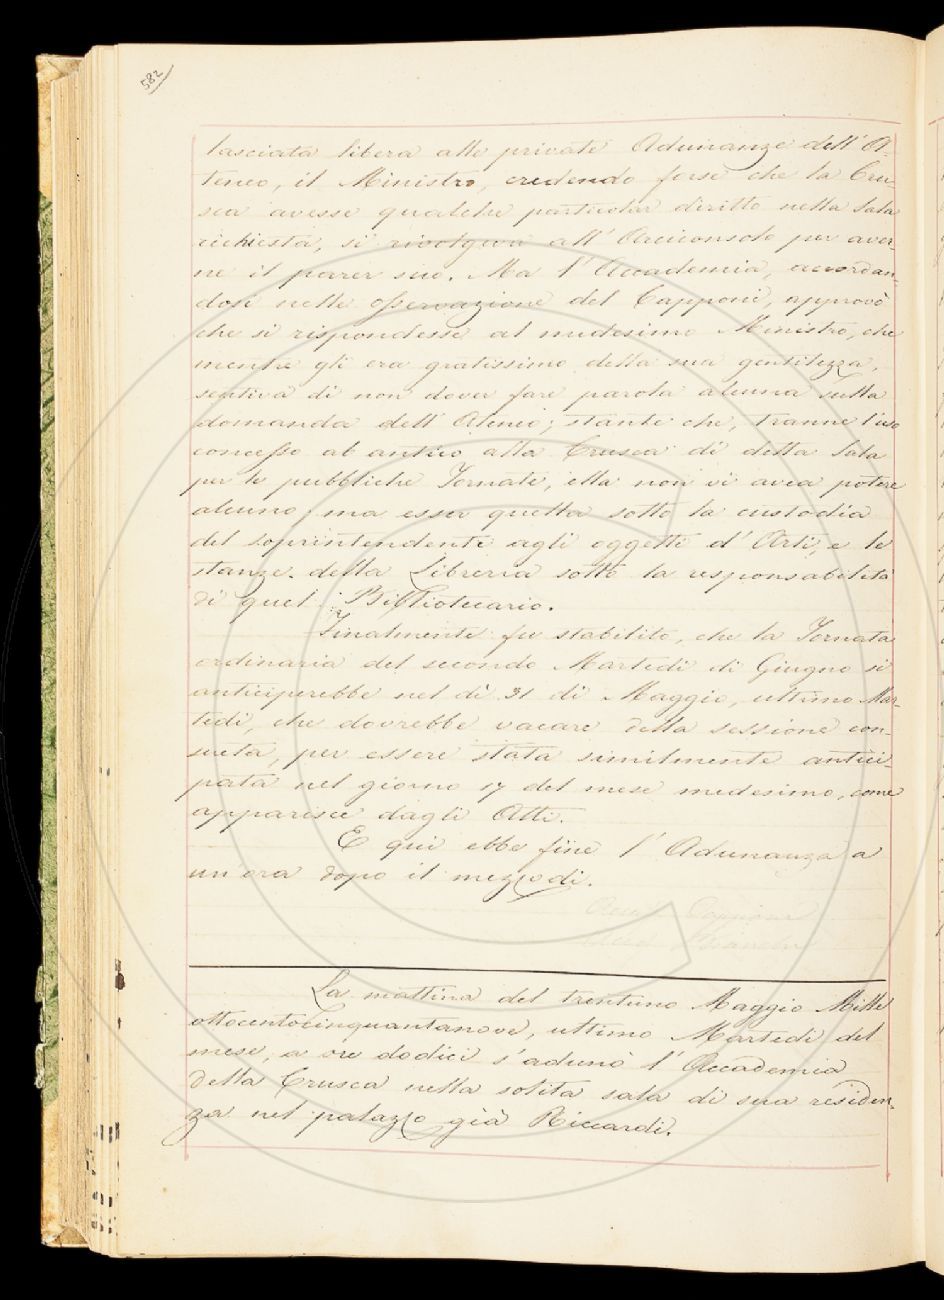 582
lasciata libera alle private Adunanze dell' A-
teneo, il Ministro, credendo forse che la Cru-
sca avesse qualche particolar diritto nella Sala
richiesta, si rivolgeva all' Arciconsolo per aver-
ne il parer suo. Ma l' Accademia, accordan-
dosi nelle osservazione del Capponi, approvò
che si rispondesse al medesimo Ministro, che
mentre gli era gratissimo della sua gentilezza,
sentiva di non dover fare parola alcuna sulla
domanda dell' Ateneo; stante che, tranne l'uso
concesso ab antico alla Crusca di detta Sala
per le pubbliche Tornate, ella non vi avea potere
alcuno, ma esser quella sotto la custodia
del Soprintendente agli oggetti d' Arti, e le
stanze della Libreria sotto la responsabilità
di quel Bibliotecario.
Finalmente fu stabilito, che la Tornata
ordinaria del secondo Martedì di Giugno si
anticiperebbe nel dì 31 di Maggio, ultimo Mar-
tedì, che dovrebbe vacare della sessione con-
sueta, per essere stata similmente antici-
pata nel giorno 17 del mese medesimo, come
apparisce dagli Atti.
E qui ebbe fine l' Adunanza a
un'ora dopo il mezzodì.
Capponi
Bianchi
La mattina del trentuno Maggio Mille
ottocentocinquantanove, ultimo Martedì del
mese, a ore dodici s'adunò l' Accademia
della Crusca nella solita sala di sua residen-
za nel palazzo già Riccardi.